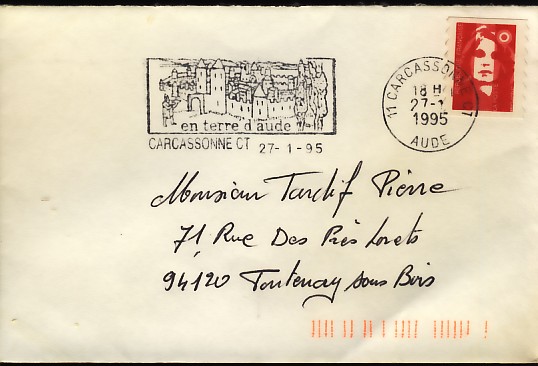 en terre d'aude
CARCASSONNE CT 27-1-95
11 CARCASSONNE CT
18 H
27-1
1995
AUDE
Monsieur Tardif Pierre
71 Rue Des Prés Lorets
94120 Fontenay sous Bois